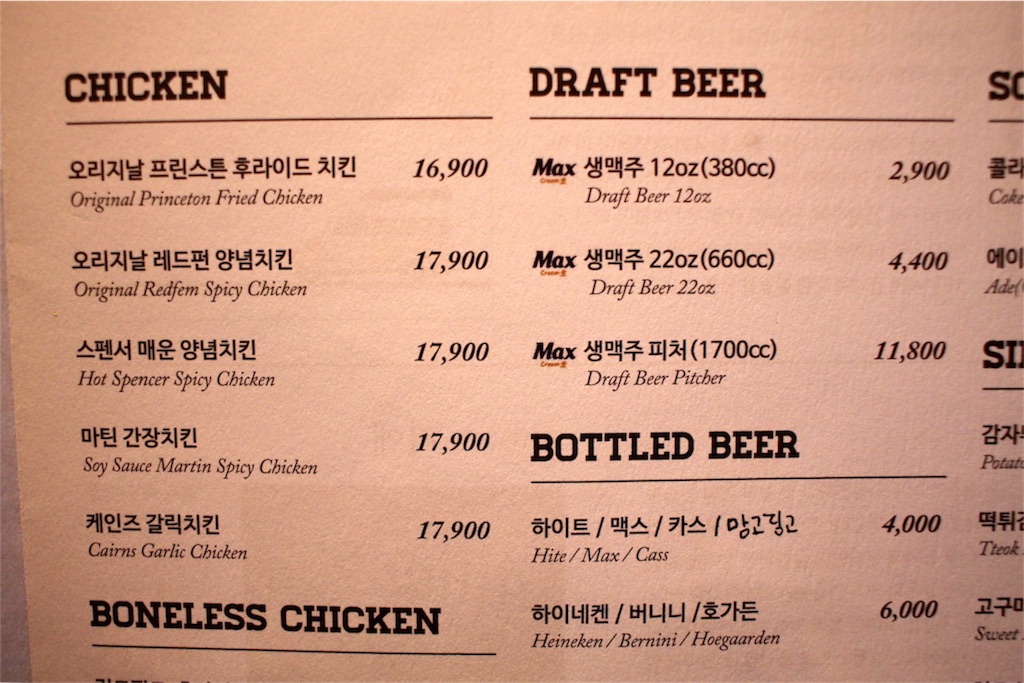 CHICKEN
오리지날 프린스튼 후라이드 치킨 16,900
Original Princeton Fried Chicken
오리지날 레드펀 양념치킨 17,900
Original Redfem Spicy Chicken
스펜서 매운 양념치킨 17,900
Hot Spencer Spicy Chicken
마틴 간장치킨 17,900
Soy Sauce Martin Spicy Chicken
케인즈 갈릭치킨 17,900
Cairns Garlic Chicken
BONELESS CHICKEN
DRAFT BEER
Max 생맥주 12oz(380cc) 2,900
Draft Beer 12oz
Max 생맥주 22oz(660cc) 4,400
Draft Beer 22oz
Max 생맥주 피처(1700cc) 11,800
Draft Beer Pitcher
BOTTLED BEER
하이트 / 맥스 / 카스 / 망고링고 4,000
Hite / Max / Cass
하이네켄 / 버니니 /호가든 6,000
Heineken / Bernini / Hoegaarden
콜라
Coke
에이
Ade(
감자
Potato
떡튀김
Tteok
고구마
Sweet